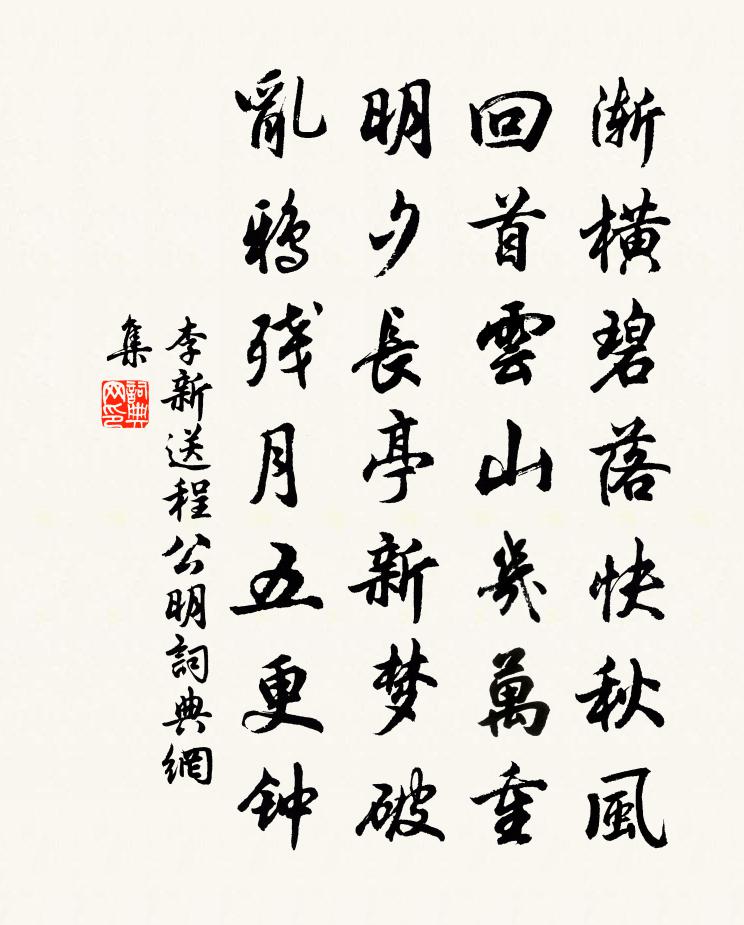 渐橫碧落快秋風
回首雲山幾萬重
明夕長亭新梦破
亂鴉残月五更钟
李新送程公明詞典網
集
詞典
网印